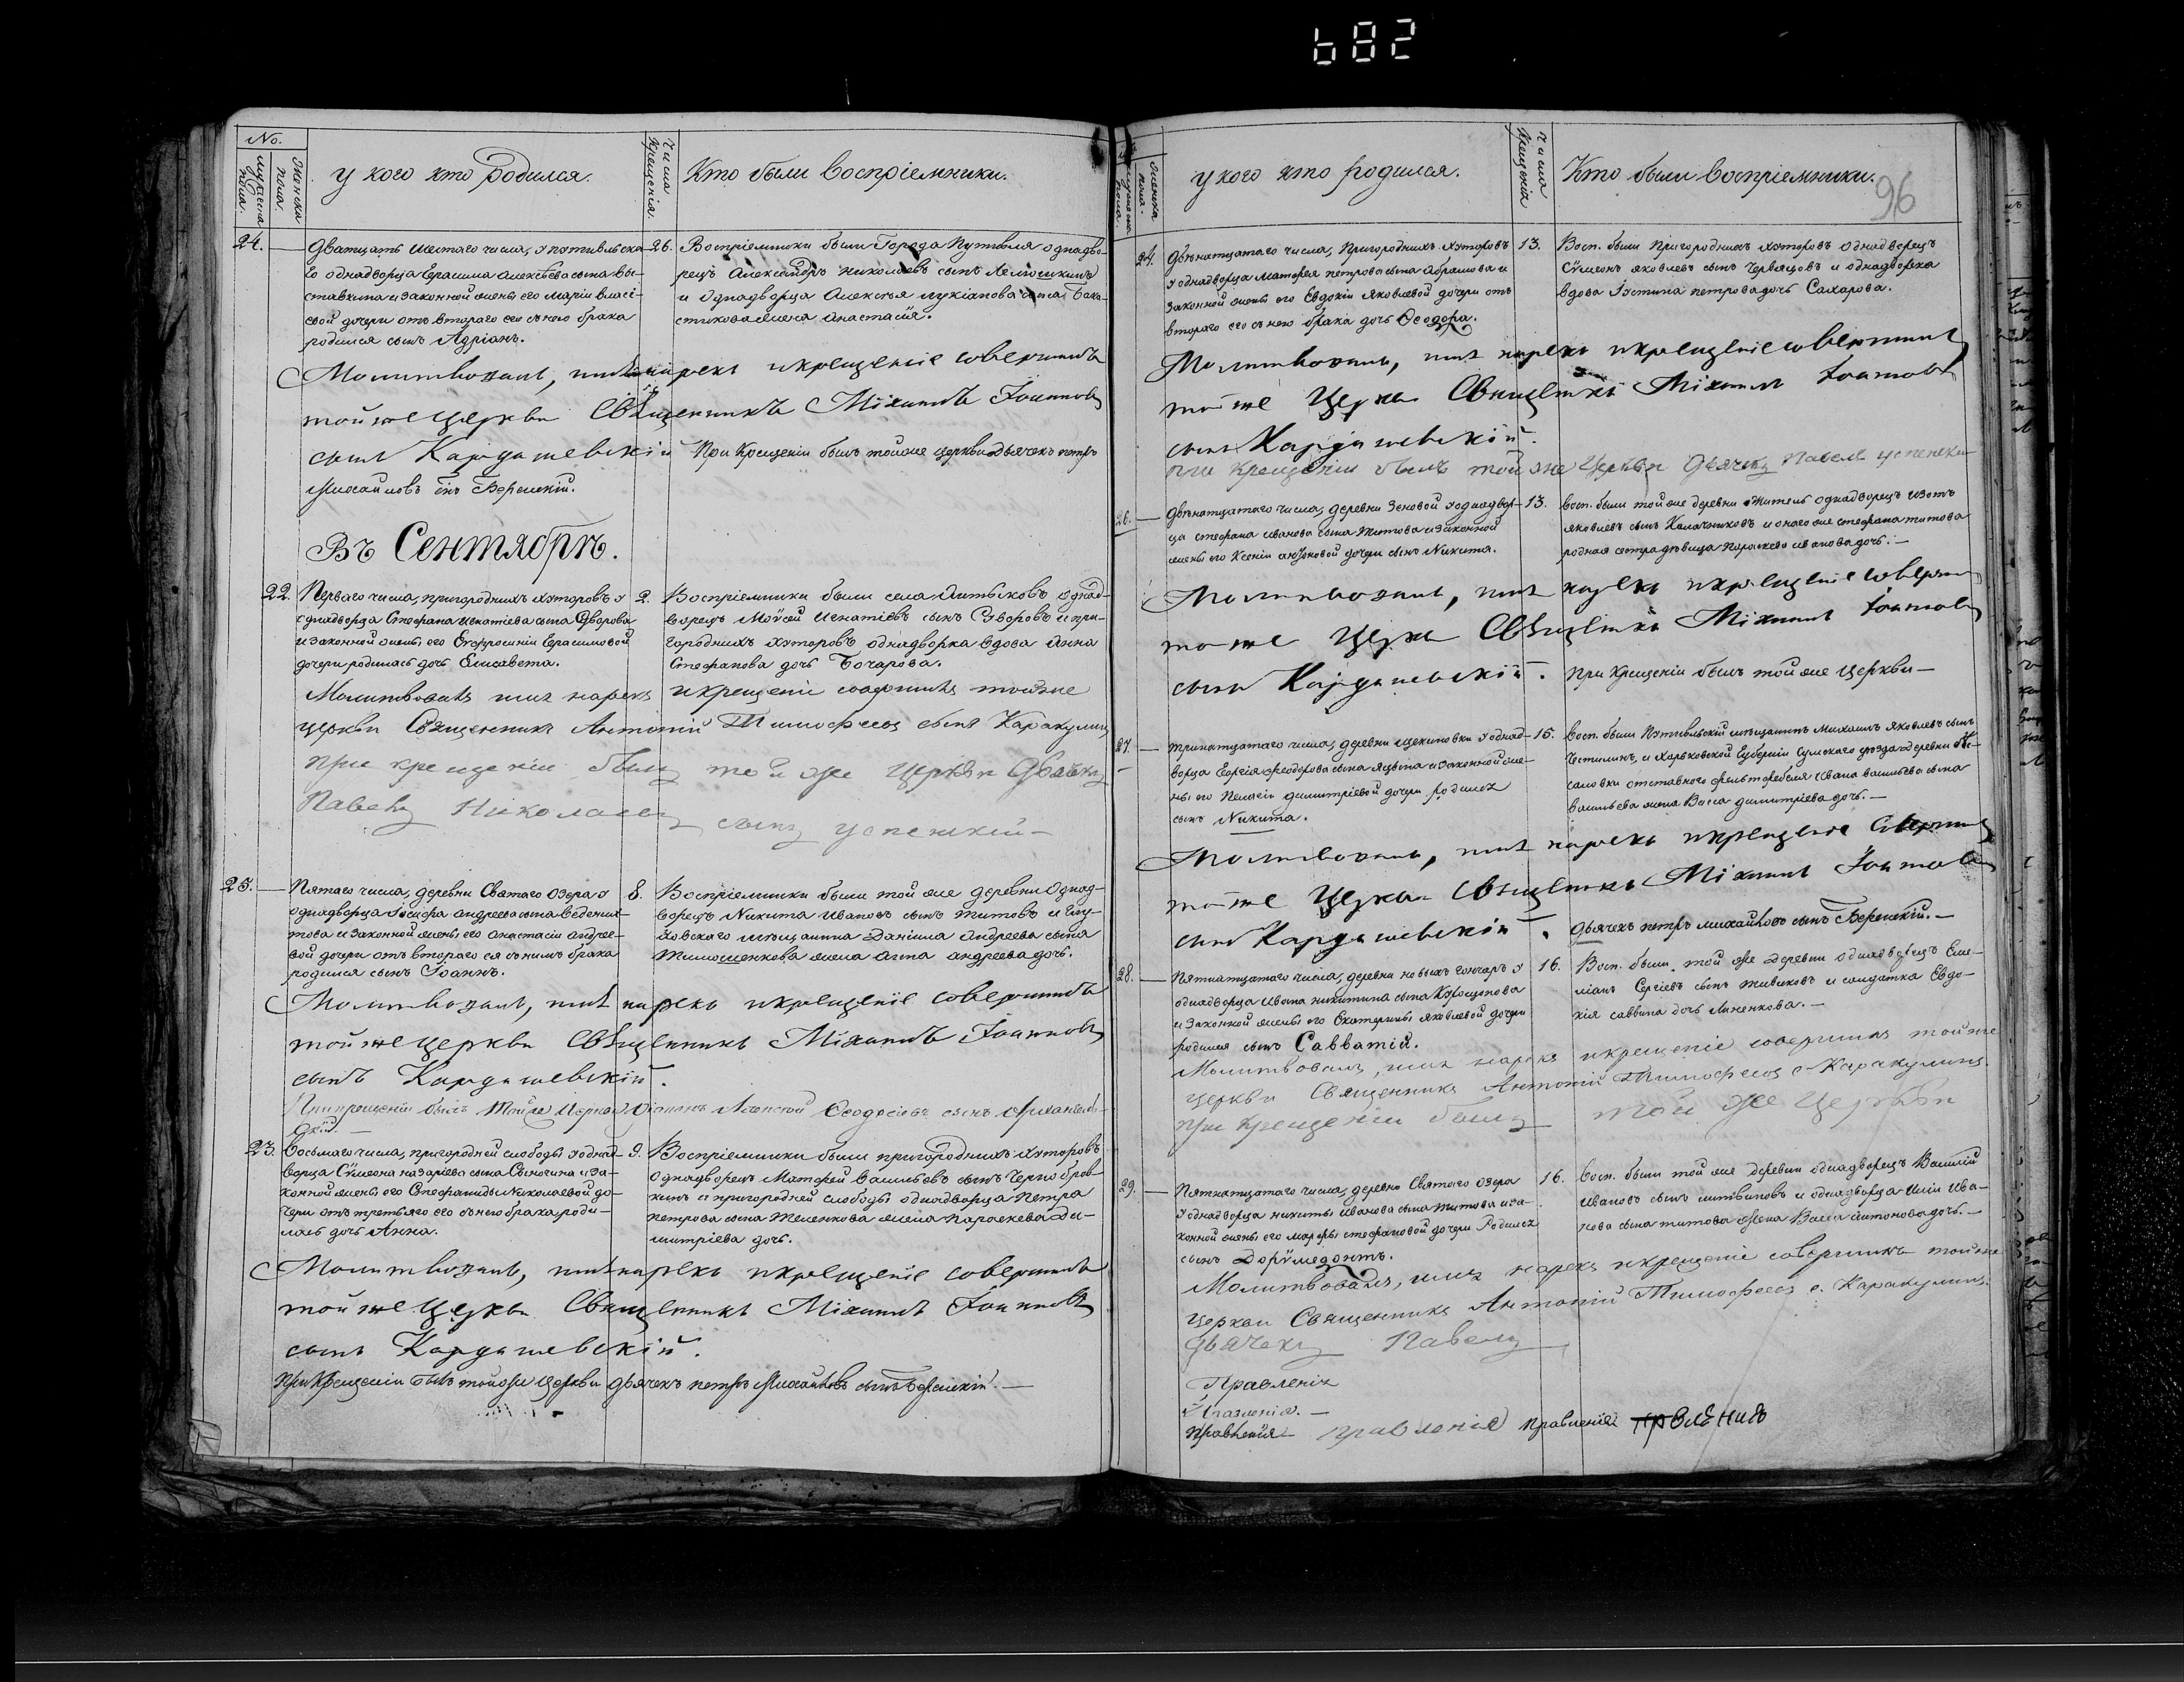 682
No.
мужеска пола.
женска пола.
у кого кто родился.
Числа Крещенія.
Кто были воспріемники.
24.
Дватцать шестаго числа, у путивльска-
го однадворца Герасима Алексѣева сына Вы-
ставкина и законной жены его Маріи Власі-
евой дочери отъ втораго его съ нею брака
родился сынъ Адріанъ.
26.
Воспріемники были Города Путивля однадво-
рецъ Александръ Николаевъ сынъ
и однадворца Алексѣя Лукіанова сына
жена Анастасія.
Молитвовалъ, имя нарекъ и крещеніе совершилъ
той же церкви Священникъ Міхаилъ Іоанновъ
сынъ Кардашевскій При Крещеніи былъ той же церкви дьячекъ петръ
Михайловъ снъ Верескій.
Въ Сентябрѣ.
22.
Перваго числа, пригородныхъ хуторовъ у
однадворца Стефана Игнатіева сына
и законной жены его Евфросиніи Герасимовой
дочери родилась дочь Елисавета.
2.
Воспріемники были села однад-
ворецъ Мойсей Игнатіевъ сынъ и при-
городныхъ хуторовъ однадворка вдова Анна
Стефанова дочь Бочарова.
Молитвовалъ имя нарекъ и крещеніе совершилъ тойже
церкви Священникъ Антоній Тимофеевъ сынъ Каракулинъ
при крещеніи былъ той же церкви Дьячекъ
Павелъ Николаевъ сынъ успенскій —
25.
Пятаго числа, деревни Святаго Озера у
однадворца Іосифа Андреева сына
и законной жены его Анастасіи Андрее-
вой дочери отъ втораго ея съ нимъ брака
родился сынъ Іоаннъ.
8.
Воспріемники были той же деревни Однад-
ворецъ Никита Ивановъ сынъ Титовъ и Глу-
ховскаго мѣщанина Даніила Андреева сына
Тимошенкова жена Анна Андреева дочь.
Молитвовалъ, имя нарекъ и крещеніе совершилъ
той же церкви Священникъ Міхаилъ Іоанновъ
сынъ Кардашевскій.
При крещеніи былъ Тойже Церкви Ѳеодосіевъ сынъ Архангель-
скій.
23.
Восьмаго числа, пригородней слободы у однад-
ворца Сѵмеона Назаріева сына и за-
конной жены его Стефаниды Николаевой до-
чери отъ третьяго его съ нею брака роди-
лась дочь Анна.
9.
Воспріемники были пригородныхъ хуторовъ
Однадворецъ Матфей Васильевъ сынъ Чернобров-
кинъ и пригородней слободы однадворца Петра
петрова сына жена Параскева Ди-
митріева дочь.
Молитвовалъ, имя нарекъ и крещеніе совершилъ
той же Церкви Священникъ Міхаилъ Іоанновъ
сынъ Кардашевскій.
При Крещеніи былъ тойже Церкви дьячекъ петръ Михайловъ сынъ Верескій. —
женска пола.
у кого кто родился.
Числа Крещенія
Кто были воспріемники.
96
24.
Двѣнатцатаго числа, Пригородныхъ хуторовъ
у однадворца Матфея петрова сына Абрамова и
законной жены его Евдокіи Яковлевой дочери отъ
втораго его съ нею брака дочь Ѳеодора.
13.
Восп. были Пригородныхъ хуторовъ однадворецъ
Сѵмеонъ Яковлевъ сынъ Червяцовъ и однадворка
вдова Іустина петрова дочь Сахарова.
Молитвовалъ, имя нарекъ и крещеніе совершилъ
той же Церкви Священникъ Міхаилъ Іоанновъ
сынъ Кардашевскій.
при Крещеніи былъ той же Церкви Дьячекъ Павелъ успенскій
26.
Двѣнатцатаго числа, деревни Зеновой у однадвор-
ца Стефана Иванова сына Титова и законной
жены его Ксеніи дочери сынъ Никита.
13.
Восп. были той же деревни житель однадворецъ Изотъ
Яковлевъ сынъ Калачниковъ и онаго же Стефана титова
родная сестра дѣвица Параскева иванова дочь. —
Молитвовалъ, имя нарекъ и крещеніе соверши
той же Церкви Священникъ Міхаилъ Іоанновъ
сынъ Кардашевскій. При Крещеніи былъ той же Церкви —
27.
Тринатцатаго числа, деревни щекиновки у однад-
ворца Георгія Ѳеодорова сына Яцына и законной же-
ны его Пелагіи димитріевой дочери родился
сынъ Никита.
15.
Восп. были Путивльскій мѣщанинъ Михаилъ Яковлевъ сынъ
и Харьковской Губерніи Сумскаго уѣзда деревни
отставного фельтфебеля Ивана васильева сына
васильева жена Васса димитріева дочь. —
Молитвовалъ, имя нарекъ и крещеніе совершилъ
той же Церкви Священникъ Міхаилъ Іоаннов
сынъ Кардашевскій. дьячекъ петръ михайловъ сынъ Верескій. —
28.
Пятнатцатаго числа, деревни новыхъ гончаръ у
однадворца Ивана никитина сына
и законной жены его Екатерины Яковлевой дочери
родился сынъ Савватій.
16.
Восп. были той же деревни однадворецъ Еме-
ліанъ Сергіевъ сынъ и солдатка Евдо-
кія саввина дочь Линенкова. —
Молитвовалъ, имя нарекъ и крещеніе совершилъ тойже
церкви Священникъ Антоній Тимофеевъ с. Каракулинъ
при Крещеніи былъ той же Церкви
29.
Пятнатцатаго числа, деревни Святого озера
у однадворца никиты иванова сына титова и за-
конной жены его марфы стефановой дочери Родился
сынъ Дорѵмедонтъ.
16.
Восп. были той же деревни однадворецъ Василій
Ивановъ сынъ литвиновъ и однадворца Иліи Ива-
нова сына титова жена Васса Антонова дочь. —
Молитвовалъ, имя нарекъ и крещеніе совершилъ тойже
Церкви Священникъ Антоній Тимофеевъ с. Каракулинъ.
дьячекъ Павелъ
Правленія
Правленія Правленія Правленія